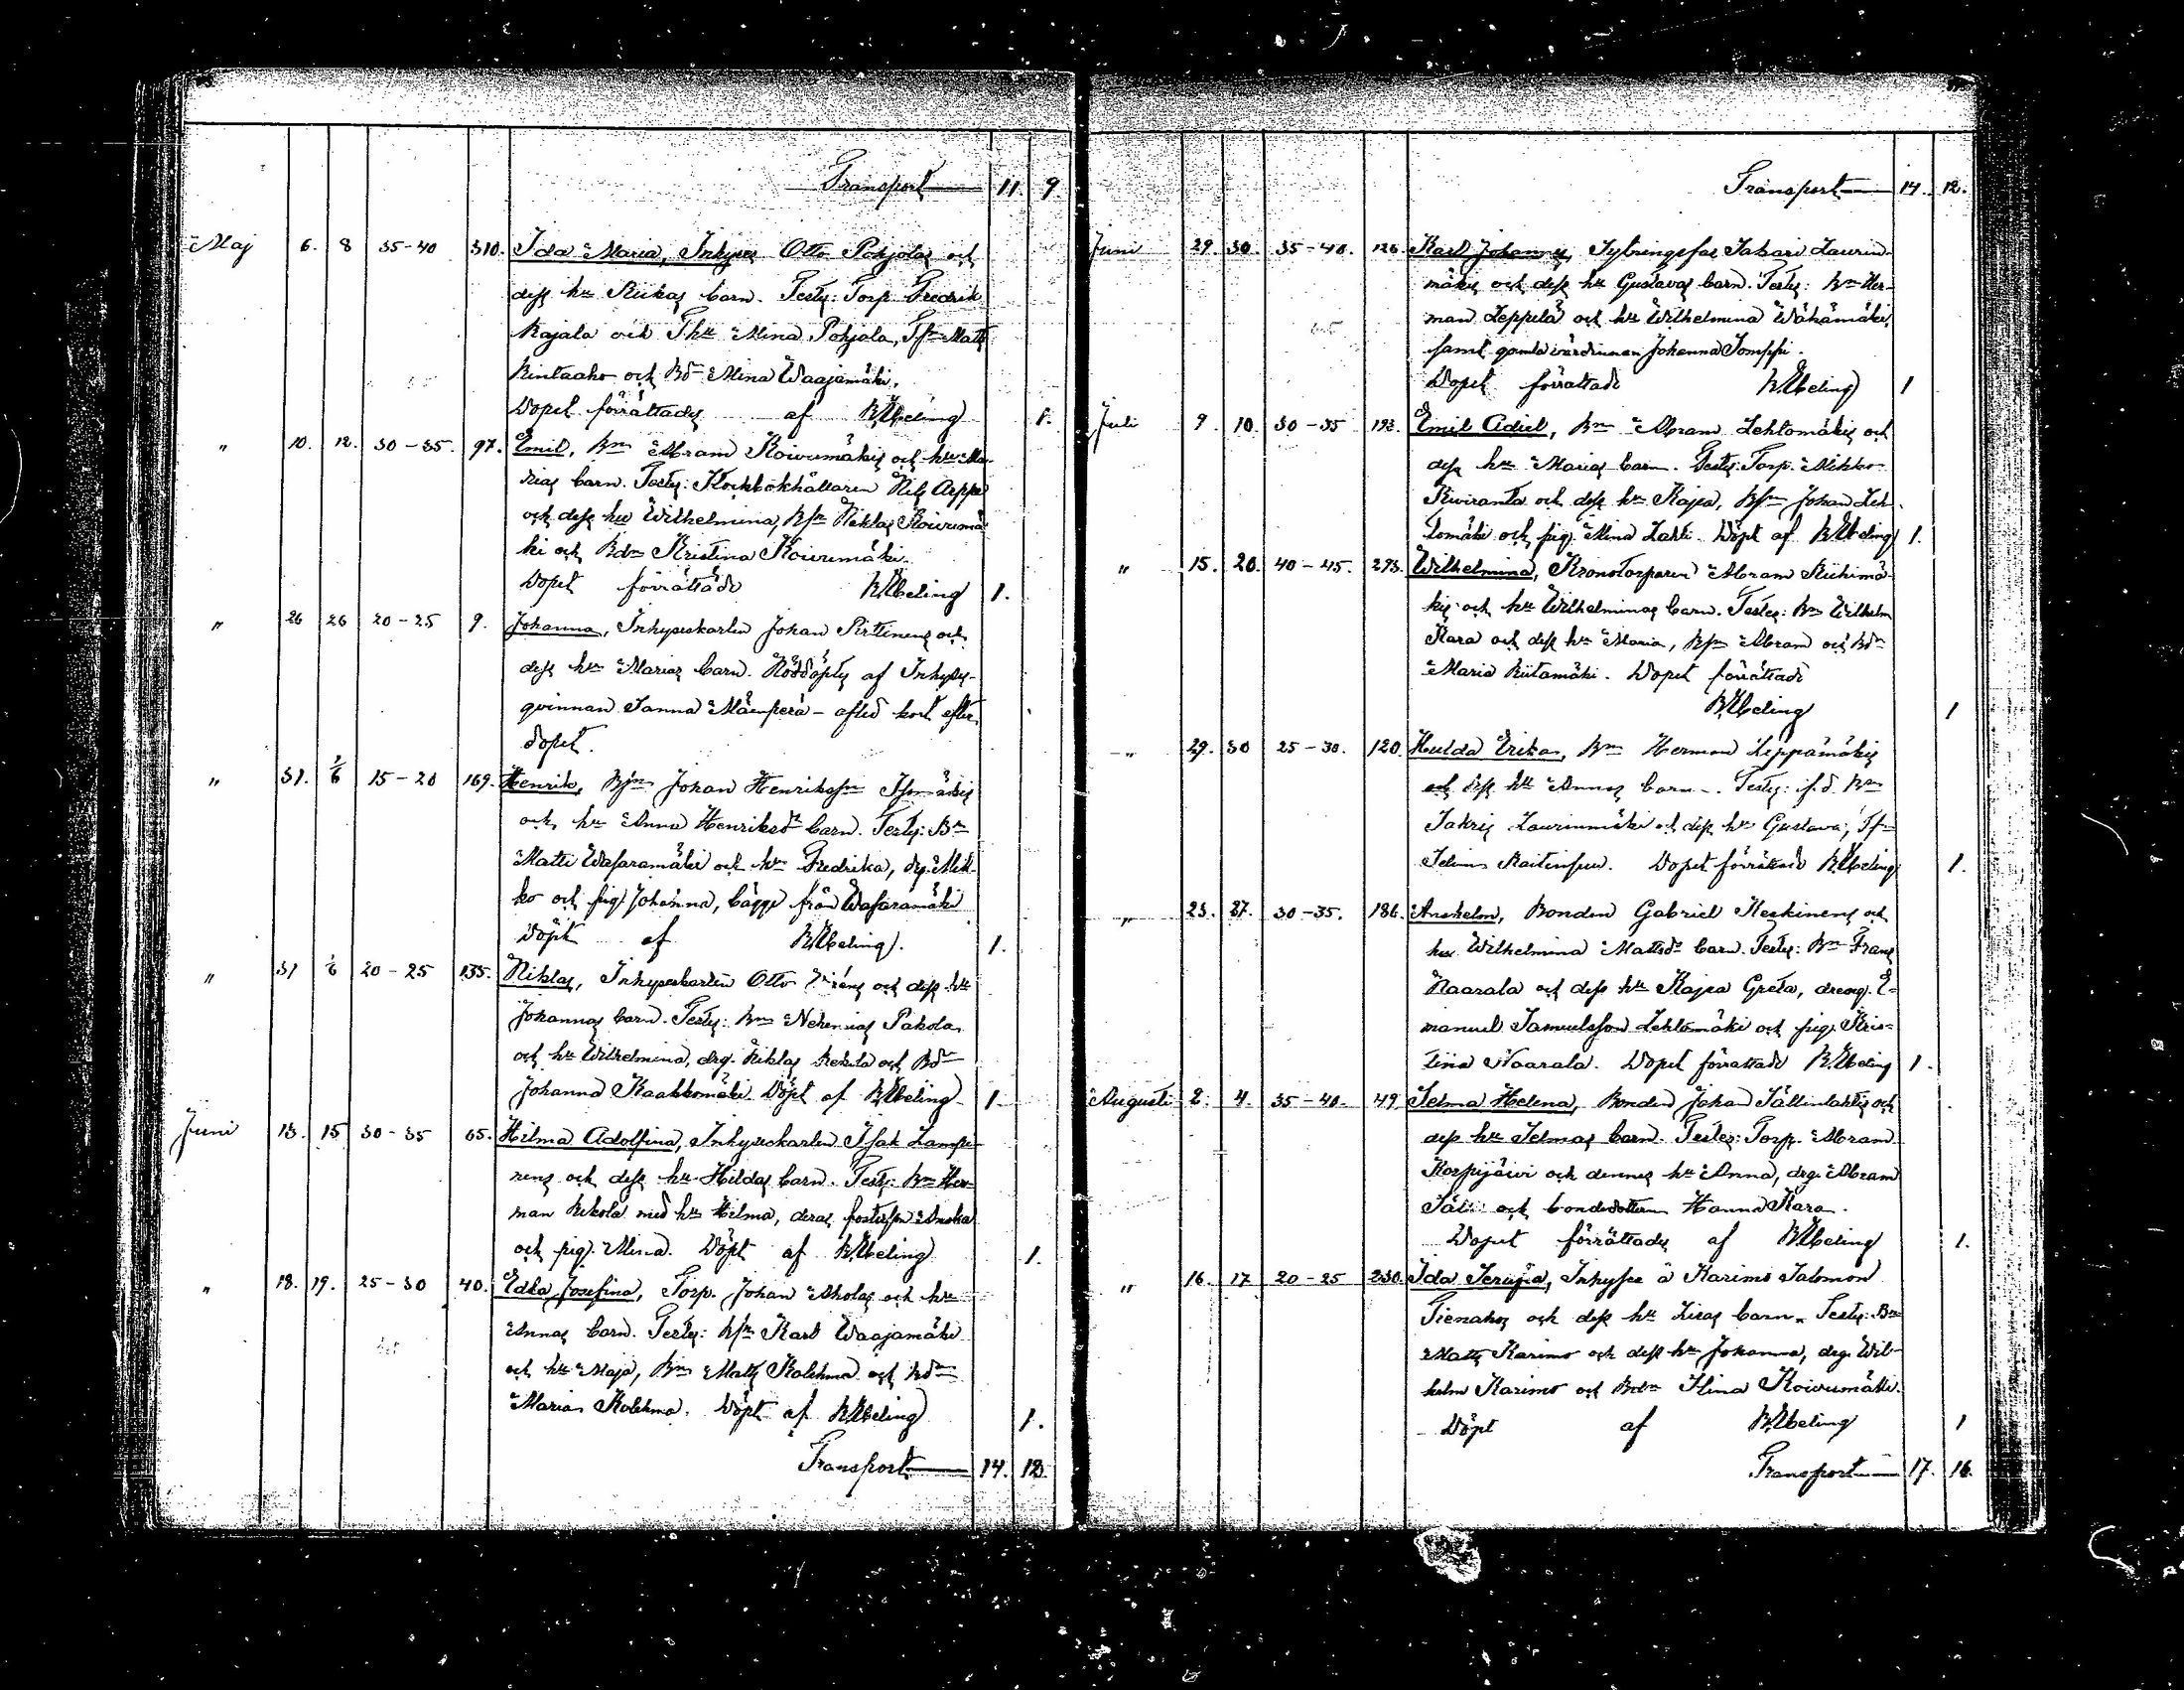 Transport 11. 9.
Maj 6. 8 35-40 310. Ida Maria, Inhyses Otto Pohjolas och
dess hu Riikas barn. Testes: Torp. Fredrik
Kajala och Thu Mina Pohjola, Tsn Matts
Rintaaho och Bdn Mina Waajamäki.
Dopet förrättades af K Ebeling 1.
" 10. 12. 30-35. 97. Emil, Bn Abram Koivumäkis och hu Ma-
rias barn. Testes: Kockbokhållaren Nils Arppe
och dess hu Wilhelmina, Bsn Niklas Koivumä-
ki och Bdn Kristina Koivumäki.
Dopet förrättade K Ebeling 1.
" 26 26 20-25 9. Johanna, Inhyseskarlen Johan Pirttinens och
dess hu Marias barn. Nöddöptes af Inhyses-
qvinnan Sanna Mäenperä - afled kort efter
dopet.
" 31. 1/6 15-20 169. Henrik, Bsn Johan Henrikssn Isomäkis
och hu Anna Henriksdr barn. Testes: Bn
Matti Wasaramäki och hu Fredrika, drg. Mik-
ko och pig. Johanna, bägge från Wasaramäki
Döpt af K Ebeling. 1.
" 31 1/6 20-25 135. Niklas, Inhyseskarlen Otto och dess hu
Johannas barn. Testes: Bn Nehemias Pakola
och hu Wilhelmina, drg. Niklas Rekola och Bdr
Johanna Kaakkomäki. Döpt af K Ebeling 1.
Juni 13. 15 30-35 65. Hilma Adolfina, Inhyseskarlen Isak Lampi-
nens och dess hu Hildas barn. Testes: Bn Her-
man Rekola med hu Hilma, deras fosterson
och pig. Mina. Döpt af K Ebeling 1.
" 18. 19. 25-30 40. Edla Josefina, Torp. Johan Aholas och hu
Annas barn. Testes: Bsn Karl Waajamäki
och hu Maja, Bn Matts Kolehma och Bdn
Maria Kolehma. Döpt af K Ebeling 1.
Transport 14. 12.
Transport 14. 12.
Juni 29. 30. 35-40. 126 Karl Johannes, Sytningsfar Sakari Laurin-
mäkis och dess hu Gustavas barn. Testes: Bn Her-
man Leppälä och hu Wilhelmina Wähämäki,
samt gamla värdinnan Johanna Somppi.
Dopet förrättade K Ebeling 1
Juli 9. 10. 30-35 193. Emil Adiel, Bn Abram Lehtomäkis och
dess hu Marias barn. Testes: Torp. Mikko
Kiviranta och dess hu Kajsa, Bsn Johan Leh-
tomäki och pig. Mina Lahti. Döpt af K Ebeling 1.
" 15. 20. 40-45. 273. Wilhelmina, Kronotorparen Abram Riihimä-
kis och hu Wilhelminas barn. Testes: Bn Wilhelm
Kara och dess hu Maria, Bsn Abram och Bdn
Maria Riitamäki. Dopet förrättade
K Ebeling 1
" 29. 30 25-30. 120. Hulda Erika, Bn Herman Leppämäkis
och dess hu Annas barn. Testes: f.d. Bn
Sakris Laurinmäki och dess hu Gustava,
Selma Dopet förrättade K Ebeling 1.
" 23. 27. 30-35. 186. Anshelm, Bonden Gabriel Keskinens och
hu Wilhelmina Mattsdr barn. Testes: Bn Frans
Naarala och dess hu Kajsa Greta, dreng. E-
manuel Samuelsson Lehtomäki och pig. Kris-
tina Naarala. Dopet förrättade K. Ebeling 1.
Augusti 2. 4. 35-40. 49 Selma Helena, Bonden Johan Sällinlahtis och
dess hu Selmas barn. Testes: Torp. Abram
Korpijärvi och dennes hu Anna, drg. Abram
och bondedottern Hanna Kara.
Dopet förrättades af K Ebeling 1.
" 16. 17 20-25 230. Ida Serafia, Inhyse å Karimo Salomon
Pienahos och dess hu Lisas barn. Testes: Bn
Matts Karimo och dess hu Johanna, drg. Wil-
helm Karimo och Bdn Hina Koivumäki.
Döpt af K Ebeling 1
Transport 17. 16.